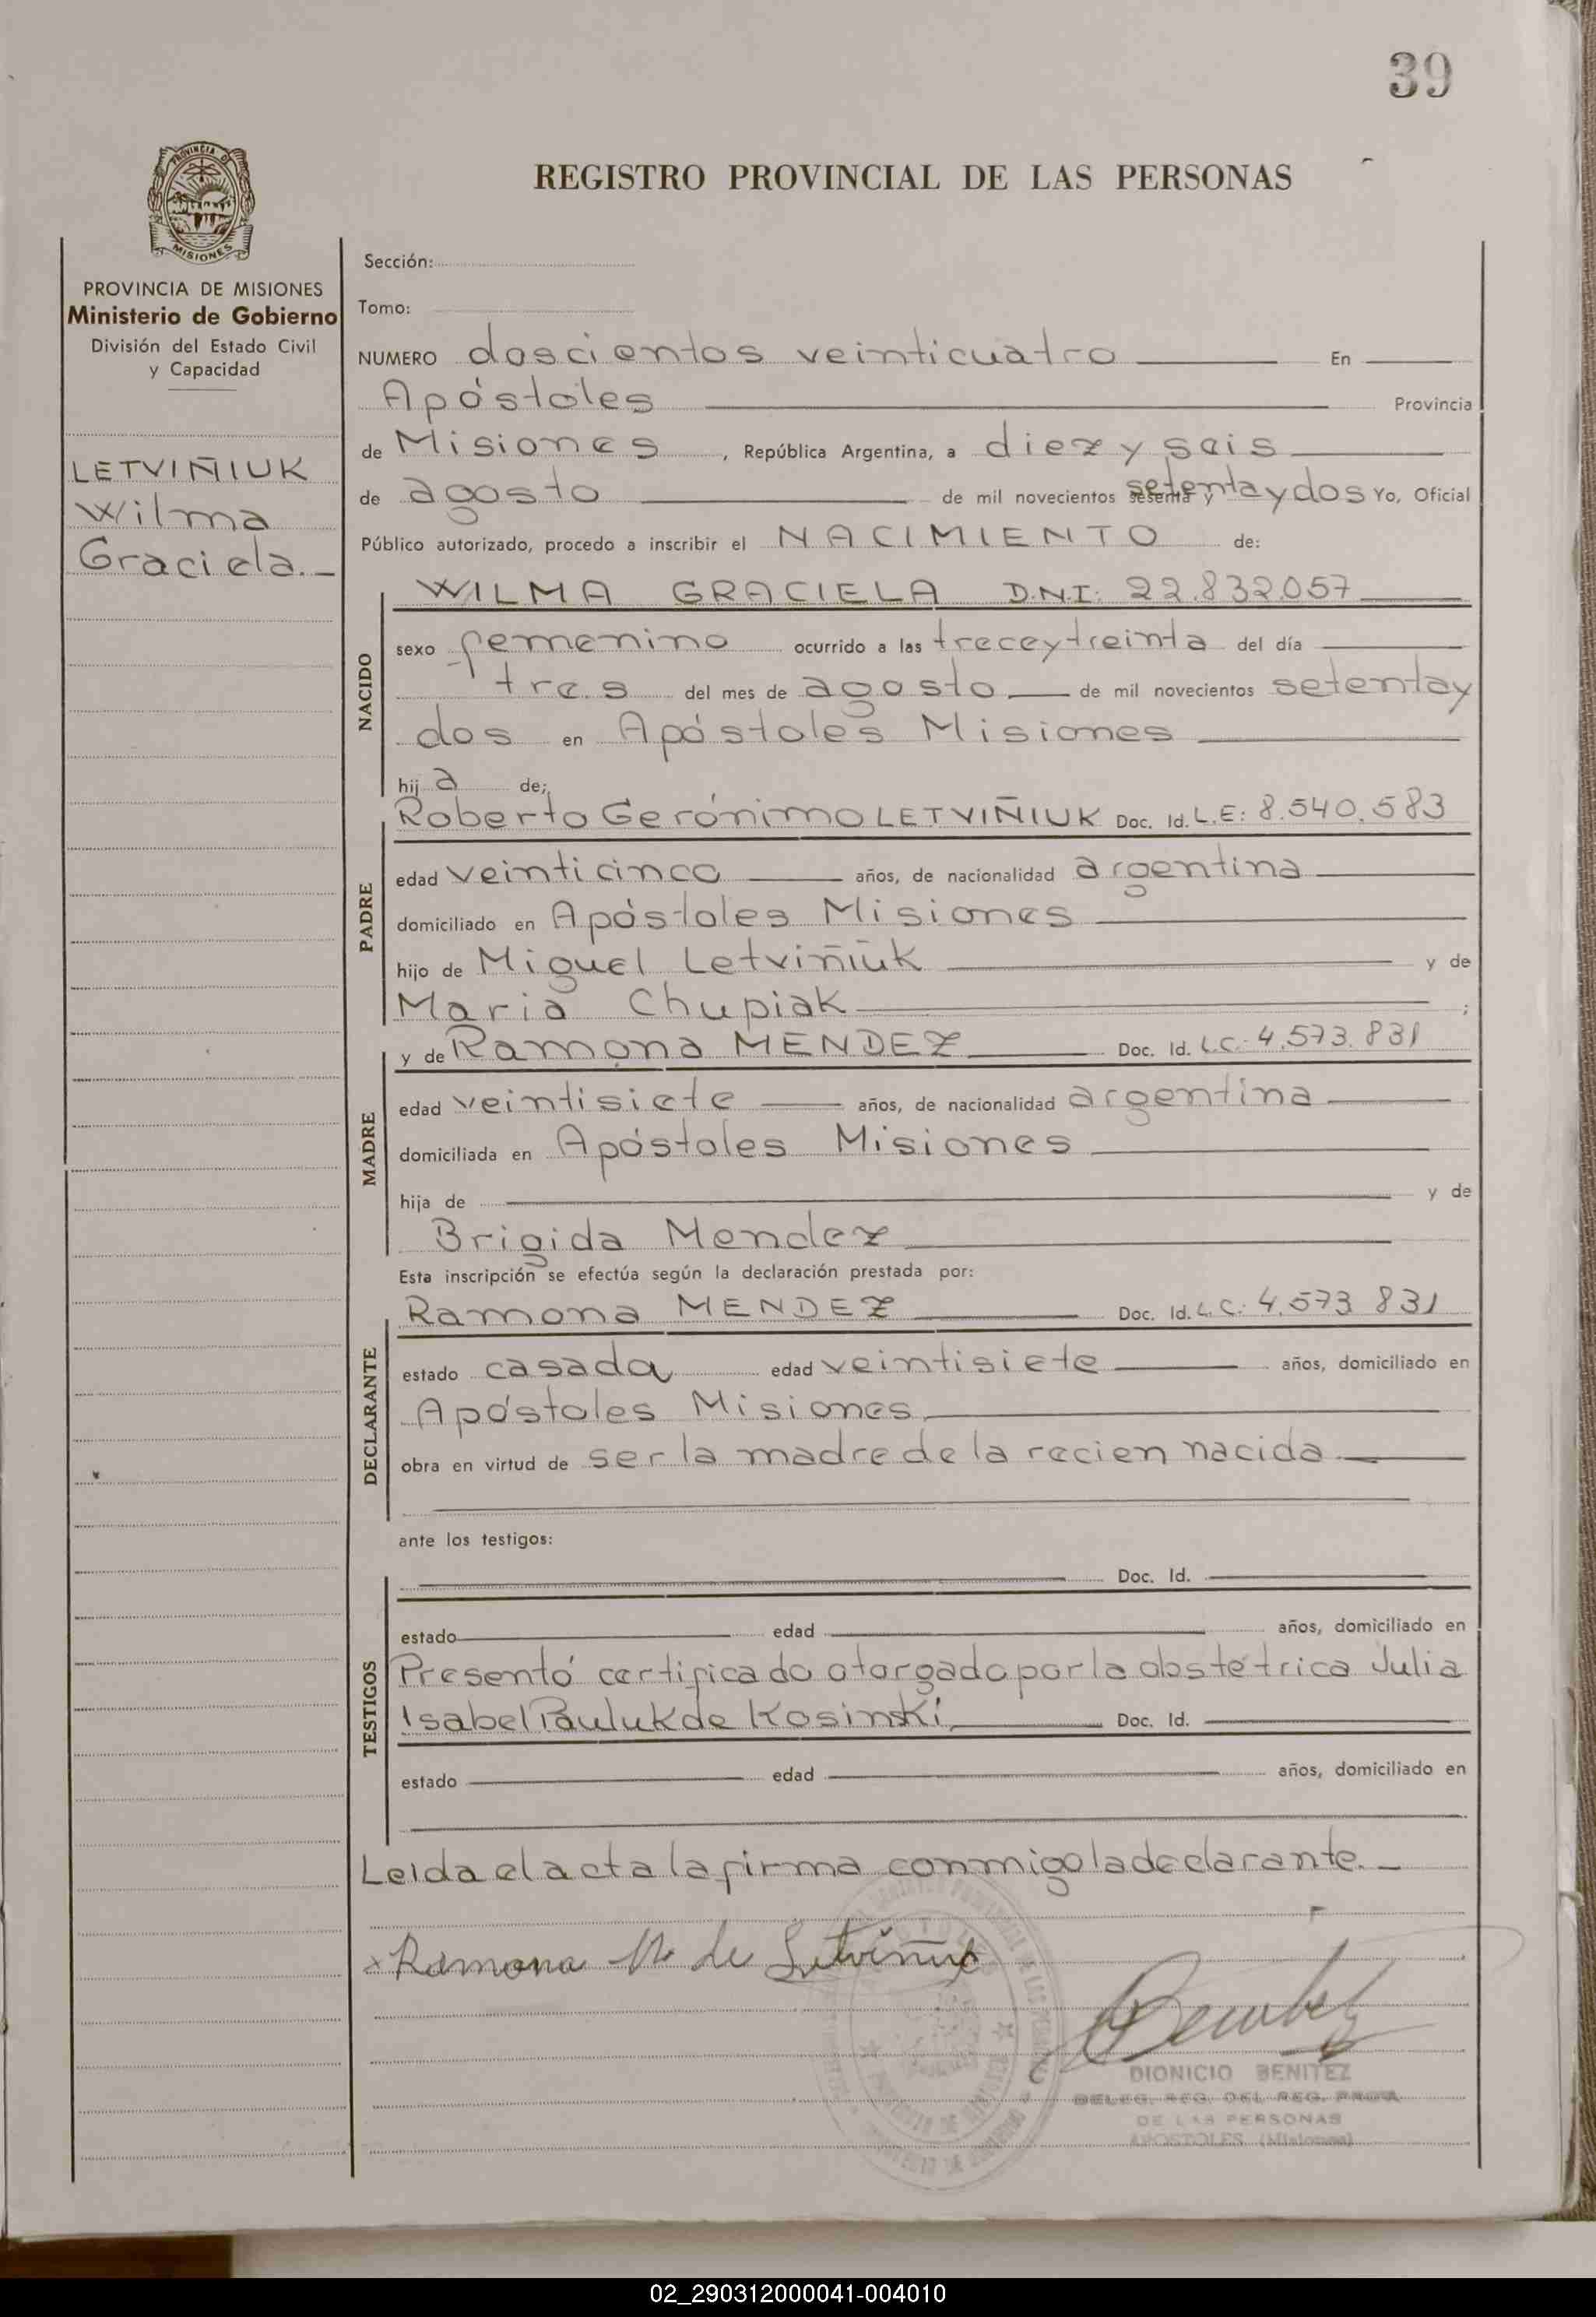 39
PROVINCIA DE
MISIONES
REGISTRO PROVINCIAL DE LAS PERSONAS
PROVINCIA DE MISIONES
Ministerio de Gobierno
División del Estado Civil
y Capacidad
LETVIÑIUK
Wilma
Graciela.
Sección:
Tomo:
NUMERO doscientos veinticuatro En
Apóstoles Provincia
de Misiones, República Argentina, a diez y seis
de agosto de mil novecientos setenta y dos Yo, Oficial
Público autorizado, procedo a inscribir el NACIMIENTO de:
NACIDO
WILMA GRACIELA D.N.I: 22.832.057
sexo femenino ocurrido a las trece y treinta del día
tres del mes de agosto de mil novecientos setenta y
dos en Apóstoles Misiones
hija de;
PADRE
Roberto Gerónimo LETVIÑIUK Doc. Id. L.E: 8.540.583
edad veinticinco años, de nacionalidad argentina
domiciliado en Apóstoles Misiones
hijo de Miguel Letviñiuk y de
Maria Chupiak ;
MADRE
y de Ramona MENDEZ Doc. Id. L.C.: 4.573.831
edad veintisiete años, de nacionalidad argentina
domiciliada en Apóstoles Misiones
hija de y de
Brigida Mendez
Esta inscripción se efectúa según la declaración prestada por:
DECLARANTE
Ramona MENDEZ Doc. Id. L.C.: 4.573.831
estado casada edad veintisiete años, domiciliado en
Apóstoles Misiones
obra en virtud de ser la madre de la recien nacida
ante los testigos:
TESTIGOS
Doc. Id.
estado edad años, domiciliado en
Presentó certificado otorgado por la obstétrica Julia
Isabel Pauluk de Kosinski Doc. Id.
estado edad años, domiciliado en
Leida el acta la firma conmigo la declarante.
x Ramona M. de Letviñiuk
DIONICIO BENITEZ
DELEG. REG. DEL REG. PROV.
DE LAS PERSONAS
APOSTOLES (Misiones)
02_290312000041-004010